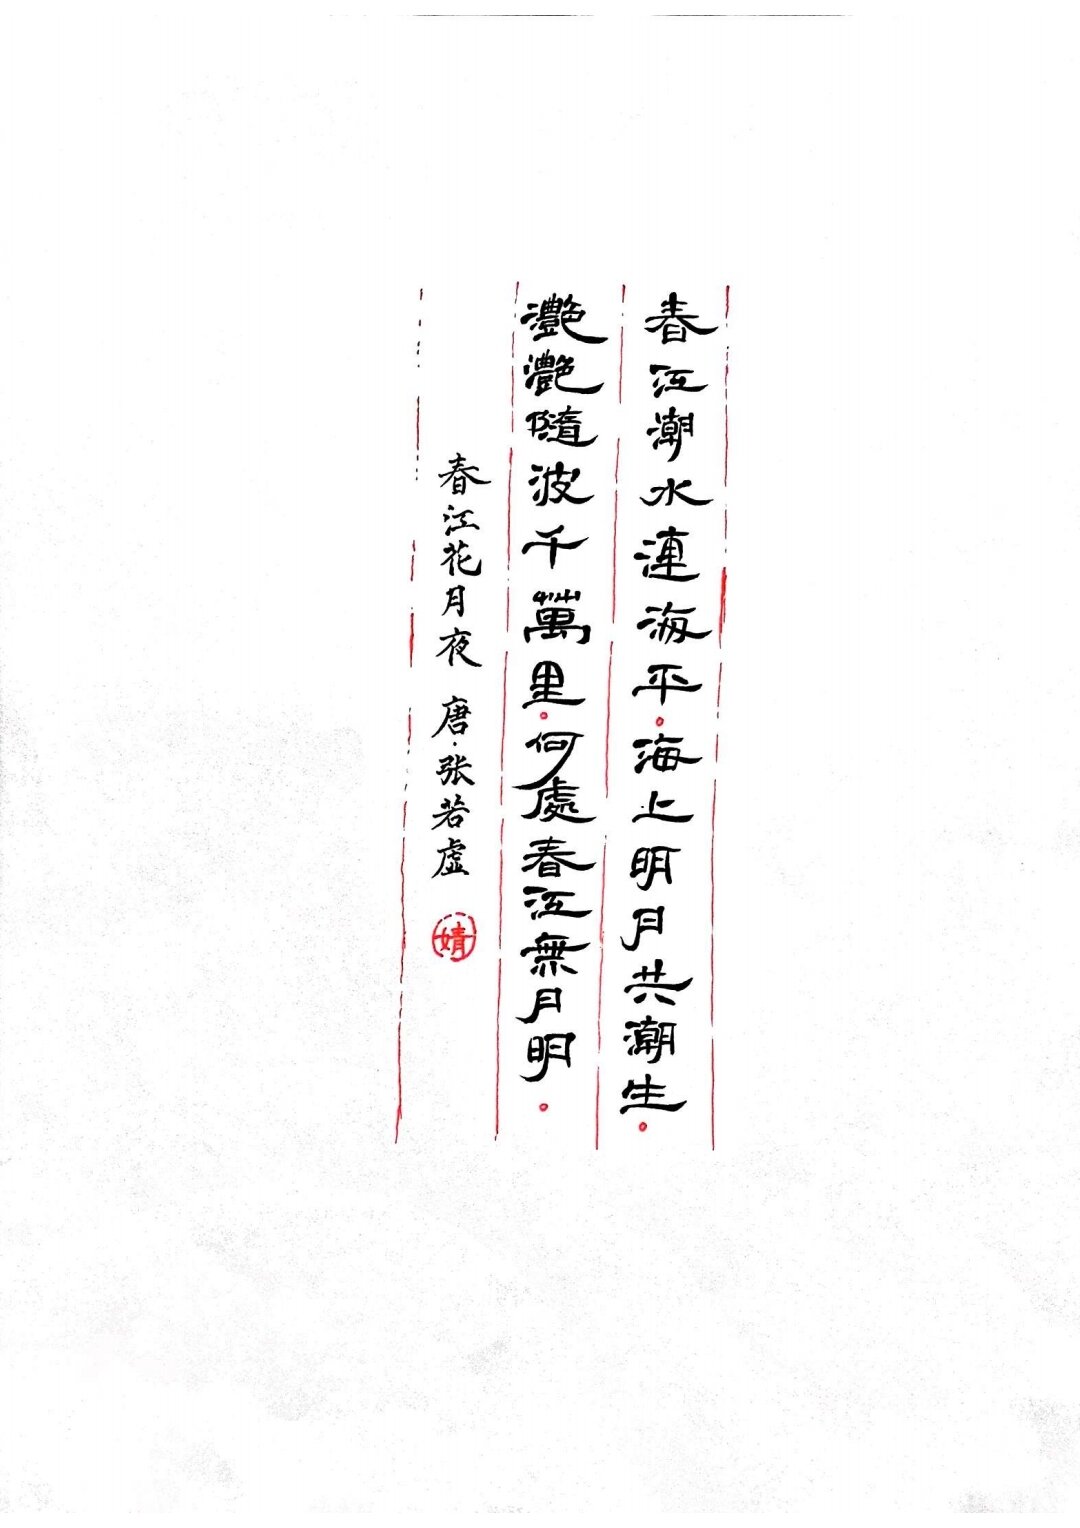 春江潮水連海平。海上明月共潮生。
灩灩隨波千萬里。何處春江無月明。
春江花月夜 唐·张若虚
婧